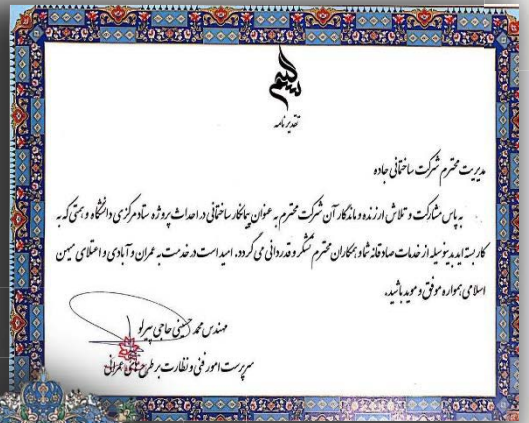 تقدیرنامه
مدیریت محترم شرکت ساختمانی جاده
به پاس مشارکت و تلاش ارزنده و ماندگار آن شرکت محترم به عنوان پیمانکار ساختمانی در احداث پروژه ستاد مرکزی دانشگاه و همتی که به
کار بسته اید بدینوسیله از خدمات صادقانه شما و همکاران محترم تشکر و قدردانی می گردد. امید است در خدمت به عمران و آبادی و اعتلای میهن
اسلامی همواره موفق و موید باشید.
مهندس محمد حسینی حاجی پیرلو
سرپرست امور فنی و نظارت بر طرح های عمرانی